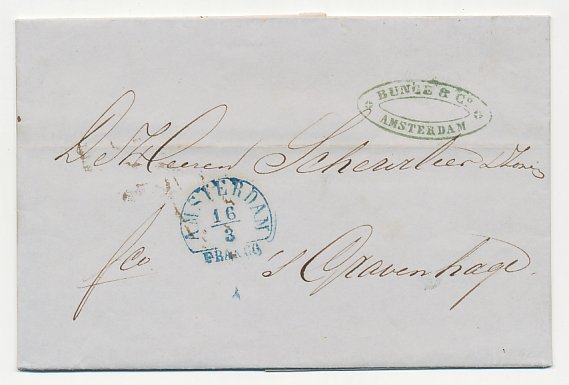 BUNGE & Co.
AMSTERDAM
De Heeren Scheurleer & Zoonen
AMSTERDAM
16
3
FRANCO
fco 's Gravenhage.